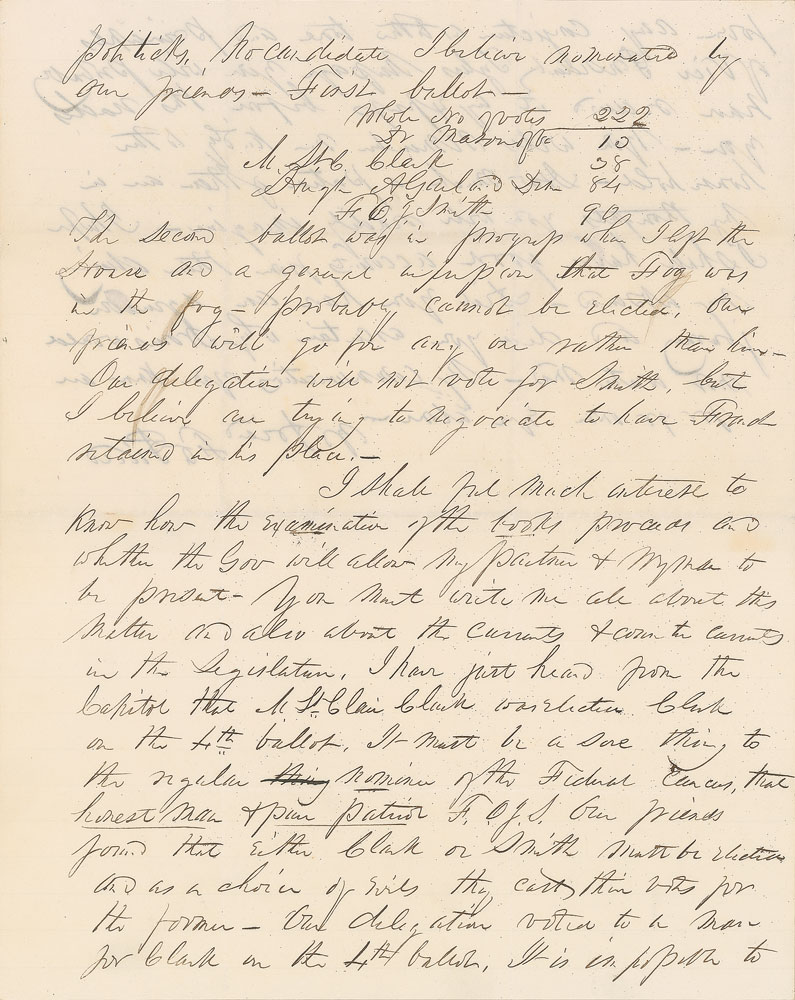 politicks. No candidate I believe nominated by
our friends – First ballot –
Whole No of votes 222
Dr Mason of 10
M. St C. Clark 38
Hugh A Garland Dem 84
F. O. J. Smith 90
The second ballot was in progress when I left the
House and a general impression that Fog was
in the fog – probably cannot be elected. Our
friends will go for any one rather than him –
Our delegation will not vote for Smith, but
I believe are trying to negociate to have French
retained in his place. –
I shall feel much interest to
know how the examination of the books proceeds and
whether the Gov will allow my partner & Wyman to
be present – You must write me all about this
matter and also about the currents & counter currents
in the Legislature. I have just heard from the
Capitol that M St Clair Clark was elected Clerk
on the 4th ballot. It must be a sore thing to
the regular thing nominee of the Federal Caucus, that
honest man & pure patriot F. O. J. S. Our friends
found that either Clark or Smith must be elected
and as a choice of evils they cast their votes for
the former – Our delegation voted to a man
for Clark on the 4th ballot. It is impossible to